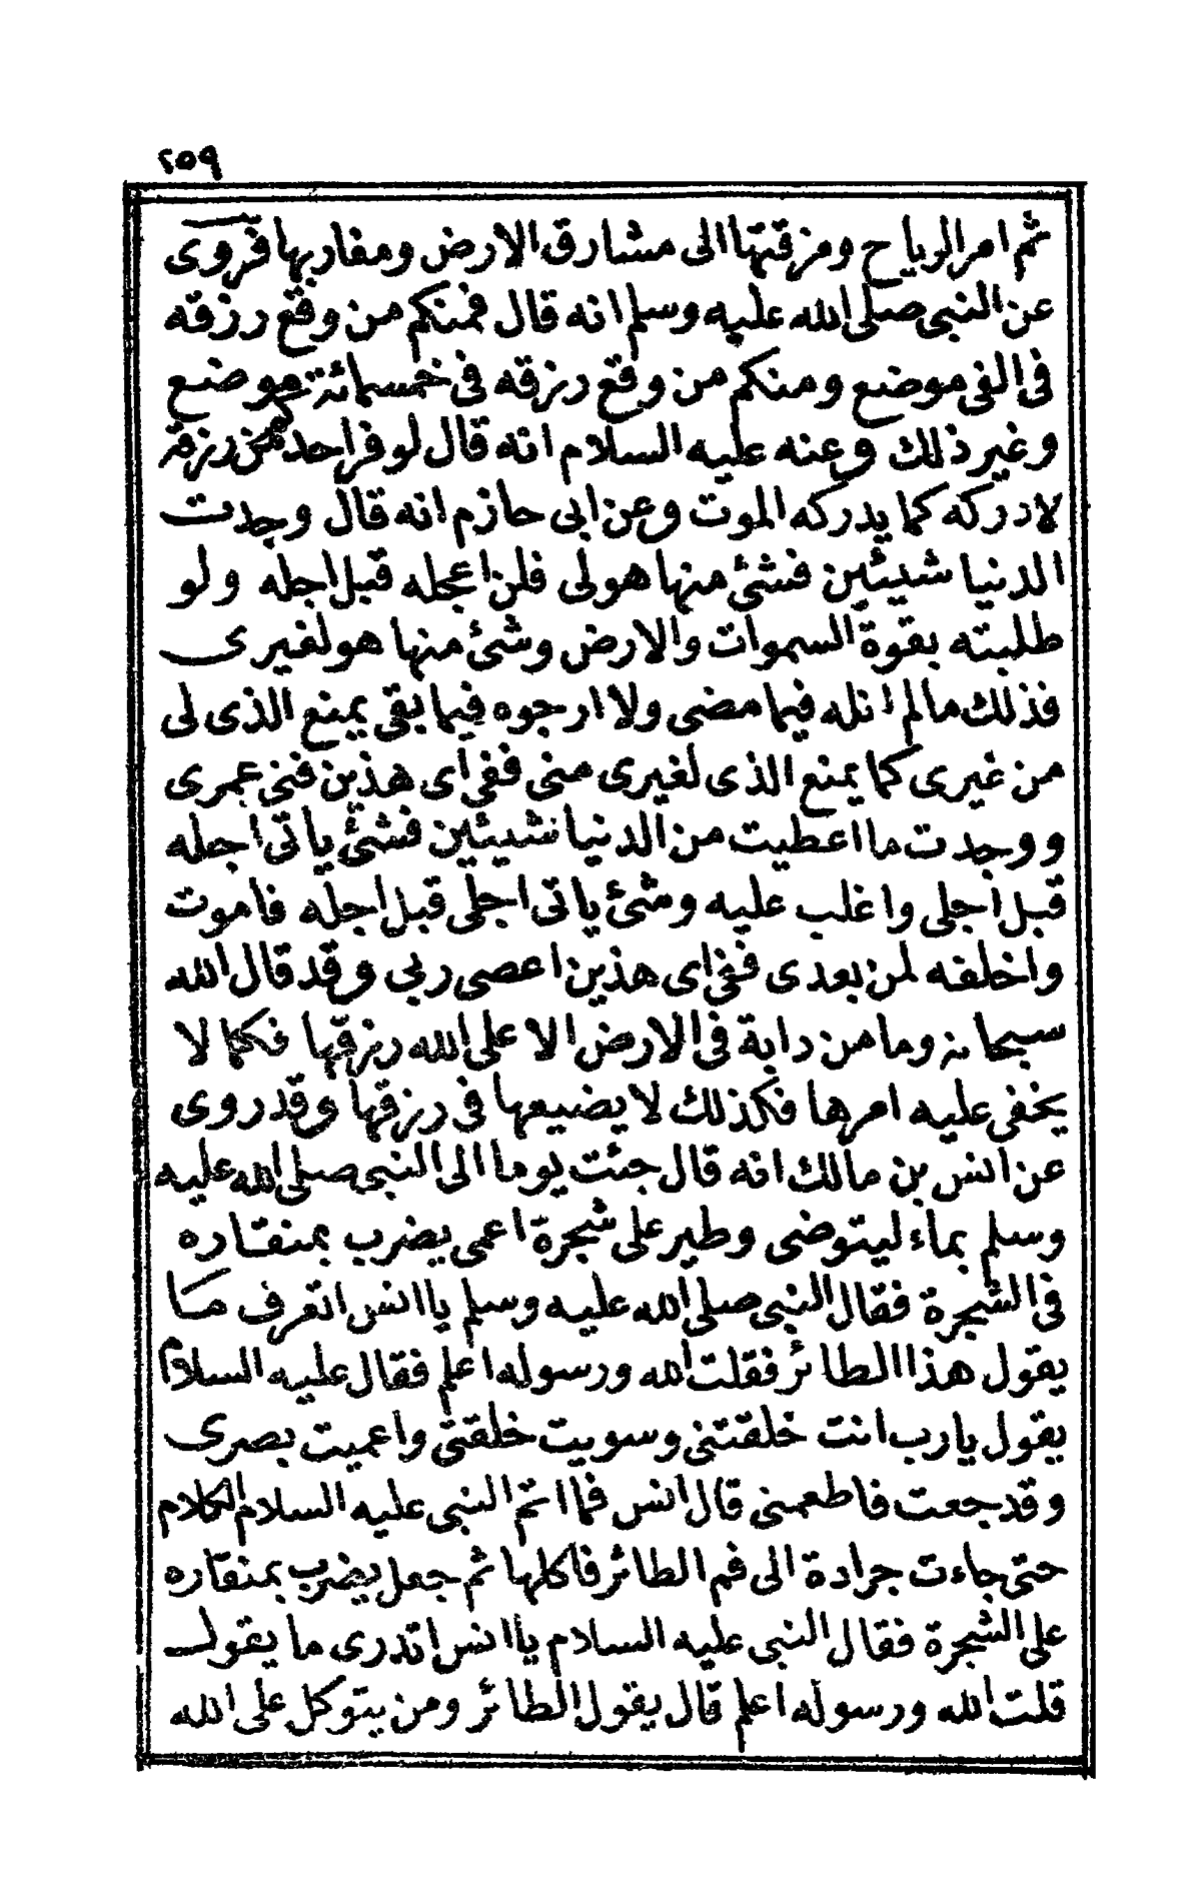 ٢٥٩
ثم امر الرياح ومزقتها الى مشارق الارض ومغاربها فروى
عن النبى صلى الله عليه وسلم انه قال فمنكم من وقع رزقه
فى الفى موضع ومنكم من وقع رزقه فى خمسمائة موضع
وغير ذلك وعنه عليه السلام انه قال لو فر احدكم من رزقه
لادركه كما يدركه الموت وعن ابى حازم انه قال وجدت
الدنيا شيئين فشئ منها هولى فلن اعجله قبل اجله ولو
طلبته بقوة السموات والارض وشئ منها هولغيرى
فذلك مالم انله فيما مضى ولا ارجوه فيما بقى يمنع الذى لى
من غيرى كما يمنع الذى لغيرى منى ففى اى هذين فنى عمرى
ووجدت ما اعطيت من الدنيا شيئين فشئ ياتى اجله
قبل اجلى واغلب عليه وشئ ياتى اجلى قبل اجله فاموت
واخلفه لمن بعدى ففى اى هذين اعصى ربى وقد قال الله
سبحانه وما من دابة فى الارض الا على الله رزقها فكما لا
يخفى عليه امرها فكذلك لا يضيعها فى رزقها وقد روى
عن انس بن مالك انه قال جئت يوما الى النبى صلى الله عليه
وسلم بماء ليتوضى وطير على شجرة اعمى يضرب بمنقاره
فى الشجرة فقال النبى صلى الله عليه وسلم يا انس اتعرف ما
يقول هذا الطائر فقلت الله ورسوله اعلم فقال عليه السلام
يقول يارب انت خلقتنى وسويت خلقتى واعميت بصرى
وقد جعت فاطعمنى قال انس فما اتم النبى عليه السلام الكلام
حتى جاءت جرادة الى فم الطائر فاكلها ثم جعل يضرب بمنقاره
على الشجرة فقال النبى عليه السلام يا انس اتدرى ما يقول
قلت الله ورسوله اعلم قال يقول الطائر ومن يتوكل على الله